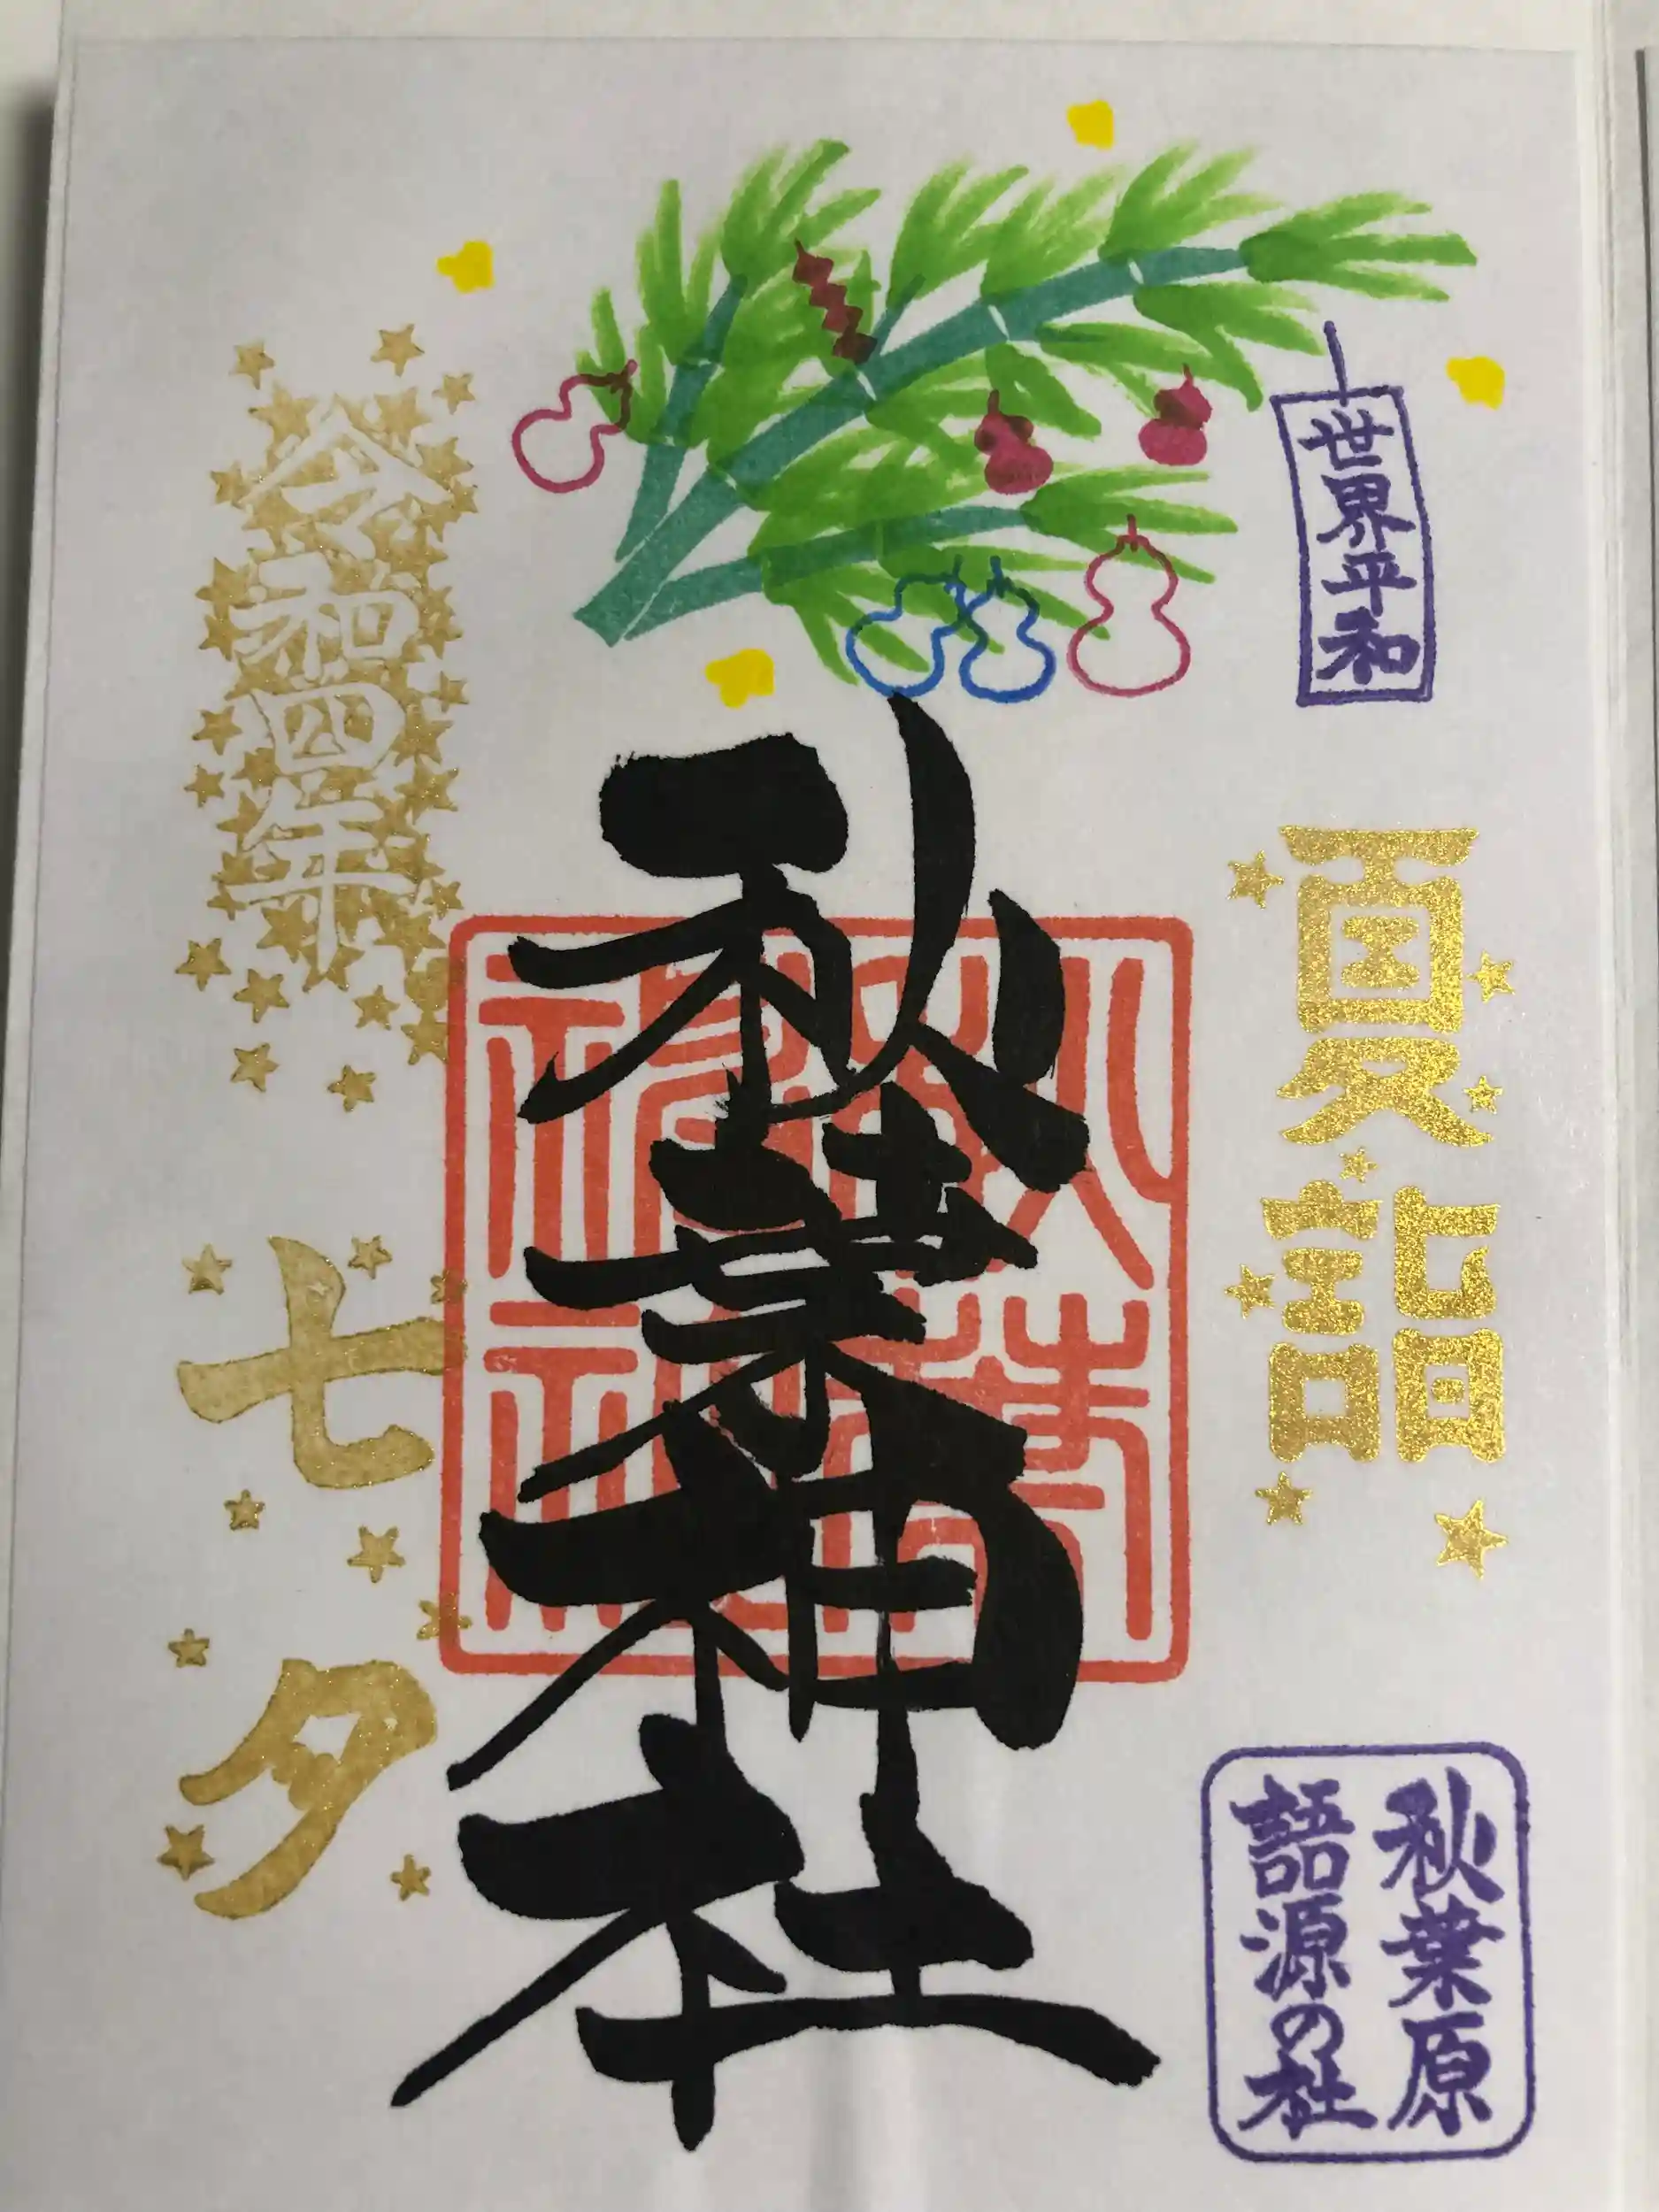 世界平和
夏詣
秋葉原
語源の社
秋葉神社
秋葉
神社
令和四年
七夕